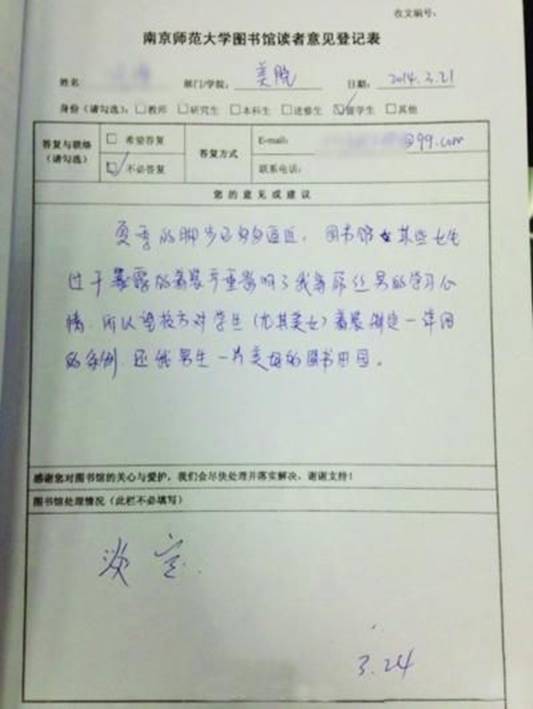 收文编号:
南京师范大学图书馆读者意见登记表
姓名 部门/学院: 美院 日期: 2014.3.21
身份(请勾选): □教师 □研究生 □本科生 □进修生 ☑留学生 □其他
答复与联络(请勾选) □ 希望答复 ☑ 不必答复 答复方式 E-mail: @99.com
联系电话:
您的意见或建议
夏季的脚步已匆匆逼近,图书馆 某些女生
过于暴露的着装严重影响了我等屌丝男的学习心
情,所以请校方对学生(尤其美女)着装制定一详细
的条例,还我男生一片美好的图书田园。
感谢您对图书馆的关心与爱护,我们会尽快处理并落实解决,谢谢支持!
图书馆处理情况(此栏不必填写)
淡定.
3.24